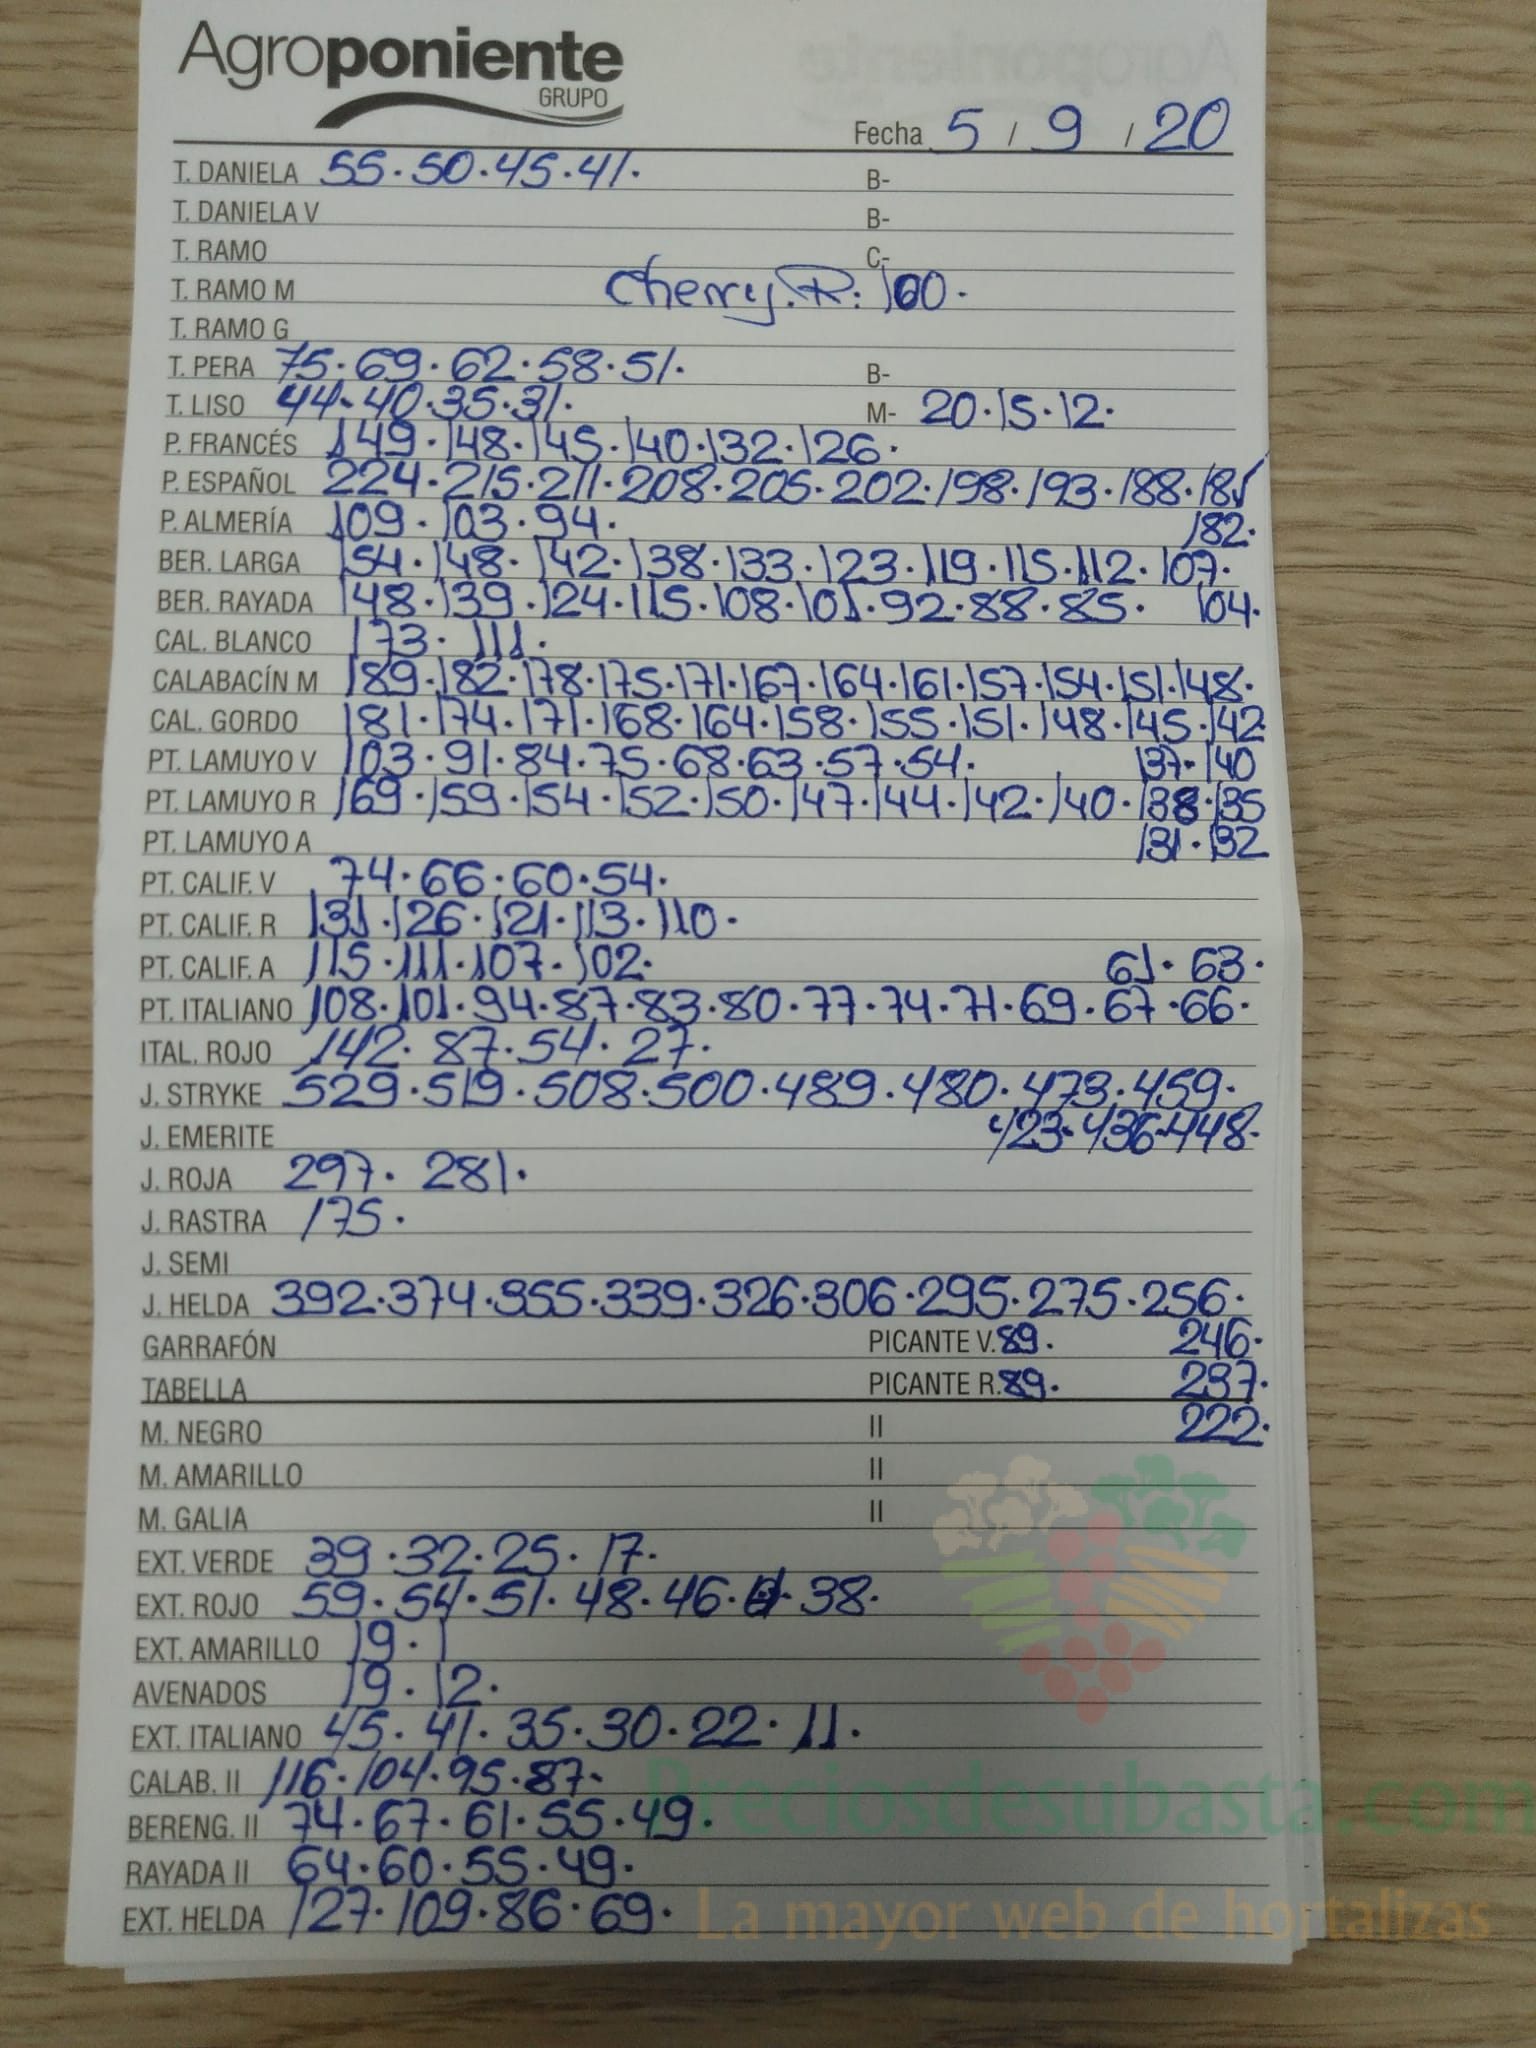 Agroponiente
GRUPO
Fecha 5 / 9 / 20
T. DANIELA 55·50·45·41· B-
T. DANIELA V B-
T. RAMO C-
T. RAMO M Cherry.R: 100·
T. RAMO G
T. PERA 75·69·62·58·51· B-
T. LISO 44·40·35·31· M- 20·15·12·
P. FRANCÉS 149·148·145·140·132·126·
P. ESPAÑOL 224·215·211·208·205·202·198·193·188·185
P. ALMERÍA 109·103·94· 182·
BER. LARGA 154·148·142·138·133·123·119·115·112·107·
BER. RAYADA 148·139·124·115·108·101·92·88·85· 104·
CAL. BLANCO 173·111·
CALABACÍN M 189·182·178·175·171·167·164·161·157·154·151·148·
CAL. GORDO 181·174·171·168·164·158·155·151·148·145·142
PT. LAMUYO V 103·91·84·75·68·63·57·54· 137·140
PT. LAMUYO R 169·159·154·152·150·147·144·142·140·138·135
PT. LAMUYO A 131·132
PT. CALIF. V 74·66·60·54·
PT. CALIF. R 131·126·121·113·110·
PT. CALIF. A 115·111·107·102· 61·63·
PT. ITALIANO 108·101·94·87·83·80·77·74·71·69·67·66·
ITAL. ROJO 142·87·54·27·
J. STRYKE 529·519·508·500·489·480·473·459·
J. EMERITE 423·436·448·
J. ROJA 297·281·
J. RASTRA 175·
J. SEMI
J. HELDA 392·374·355·339·326·306·295·275·256·
GARRAFÓN PICANTE V. 89· 246·
TABELLA PICANTE R. 89· 237·
M. NEGRO II 222·
M. AMARILLO II
M. GALIA II
EXT. VERDE 39·32·25·17·
EXT. ROJO 59·54·51·48·46· 38·
EXT. AMARILLO 19·1
AVENADOS 19·12·
EXT. ITALIANO 45·41·35·30·22·11·
CALAB. II 116·104·95·87·
Preciosdesubasta.com
BERENG. II 74·67·61·55·49·
RAYADA II 64·60·55·49·
EXT. HELDA 127·109·86·69·
La mayor web de hortalizas